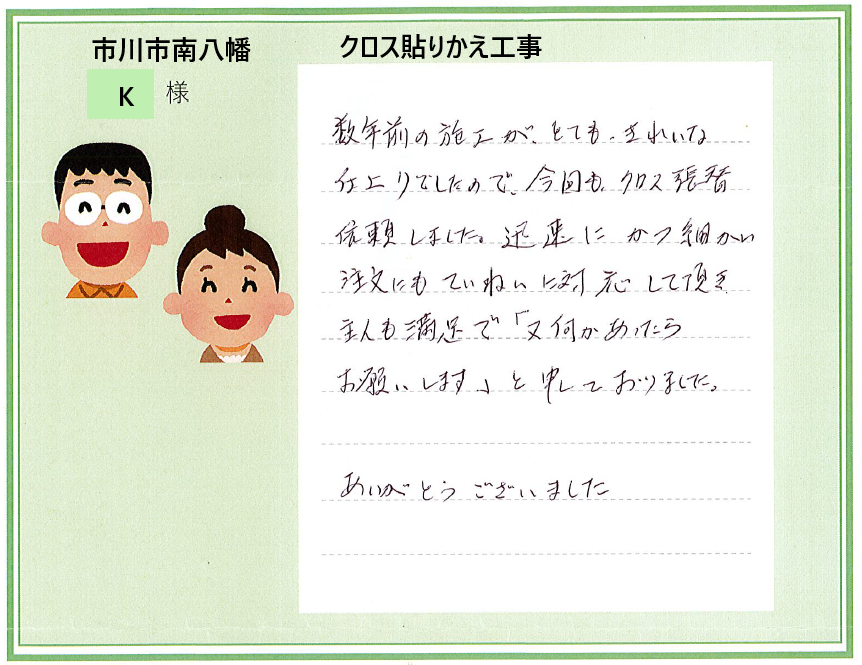 市川市南八幡
K 様
クロス貼りかえ工事
数年前の施工が、とても、きれいな
仕上りでしたので、今回も、クロス張替
依頼しました。迅速に かつ細かい
注文にもていねいに対応して頂き
主人も満足で「又何かあったら
お願いします」と申しておりました。
ありがとうございました